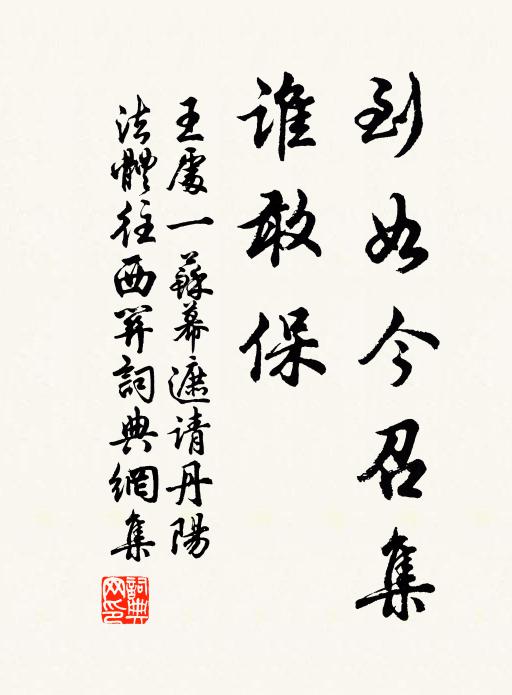 到如今召集
谁敢保
王處一蘇幕遮请丹陽
法體往西詞典網集
詞典网印